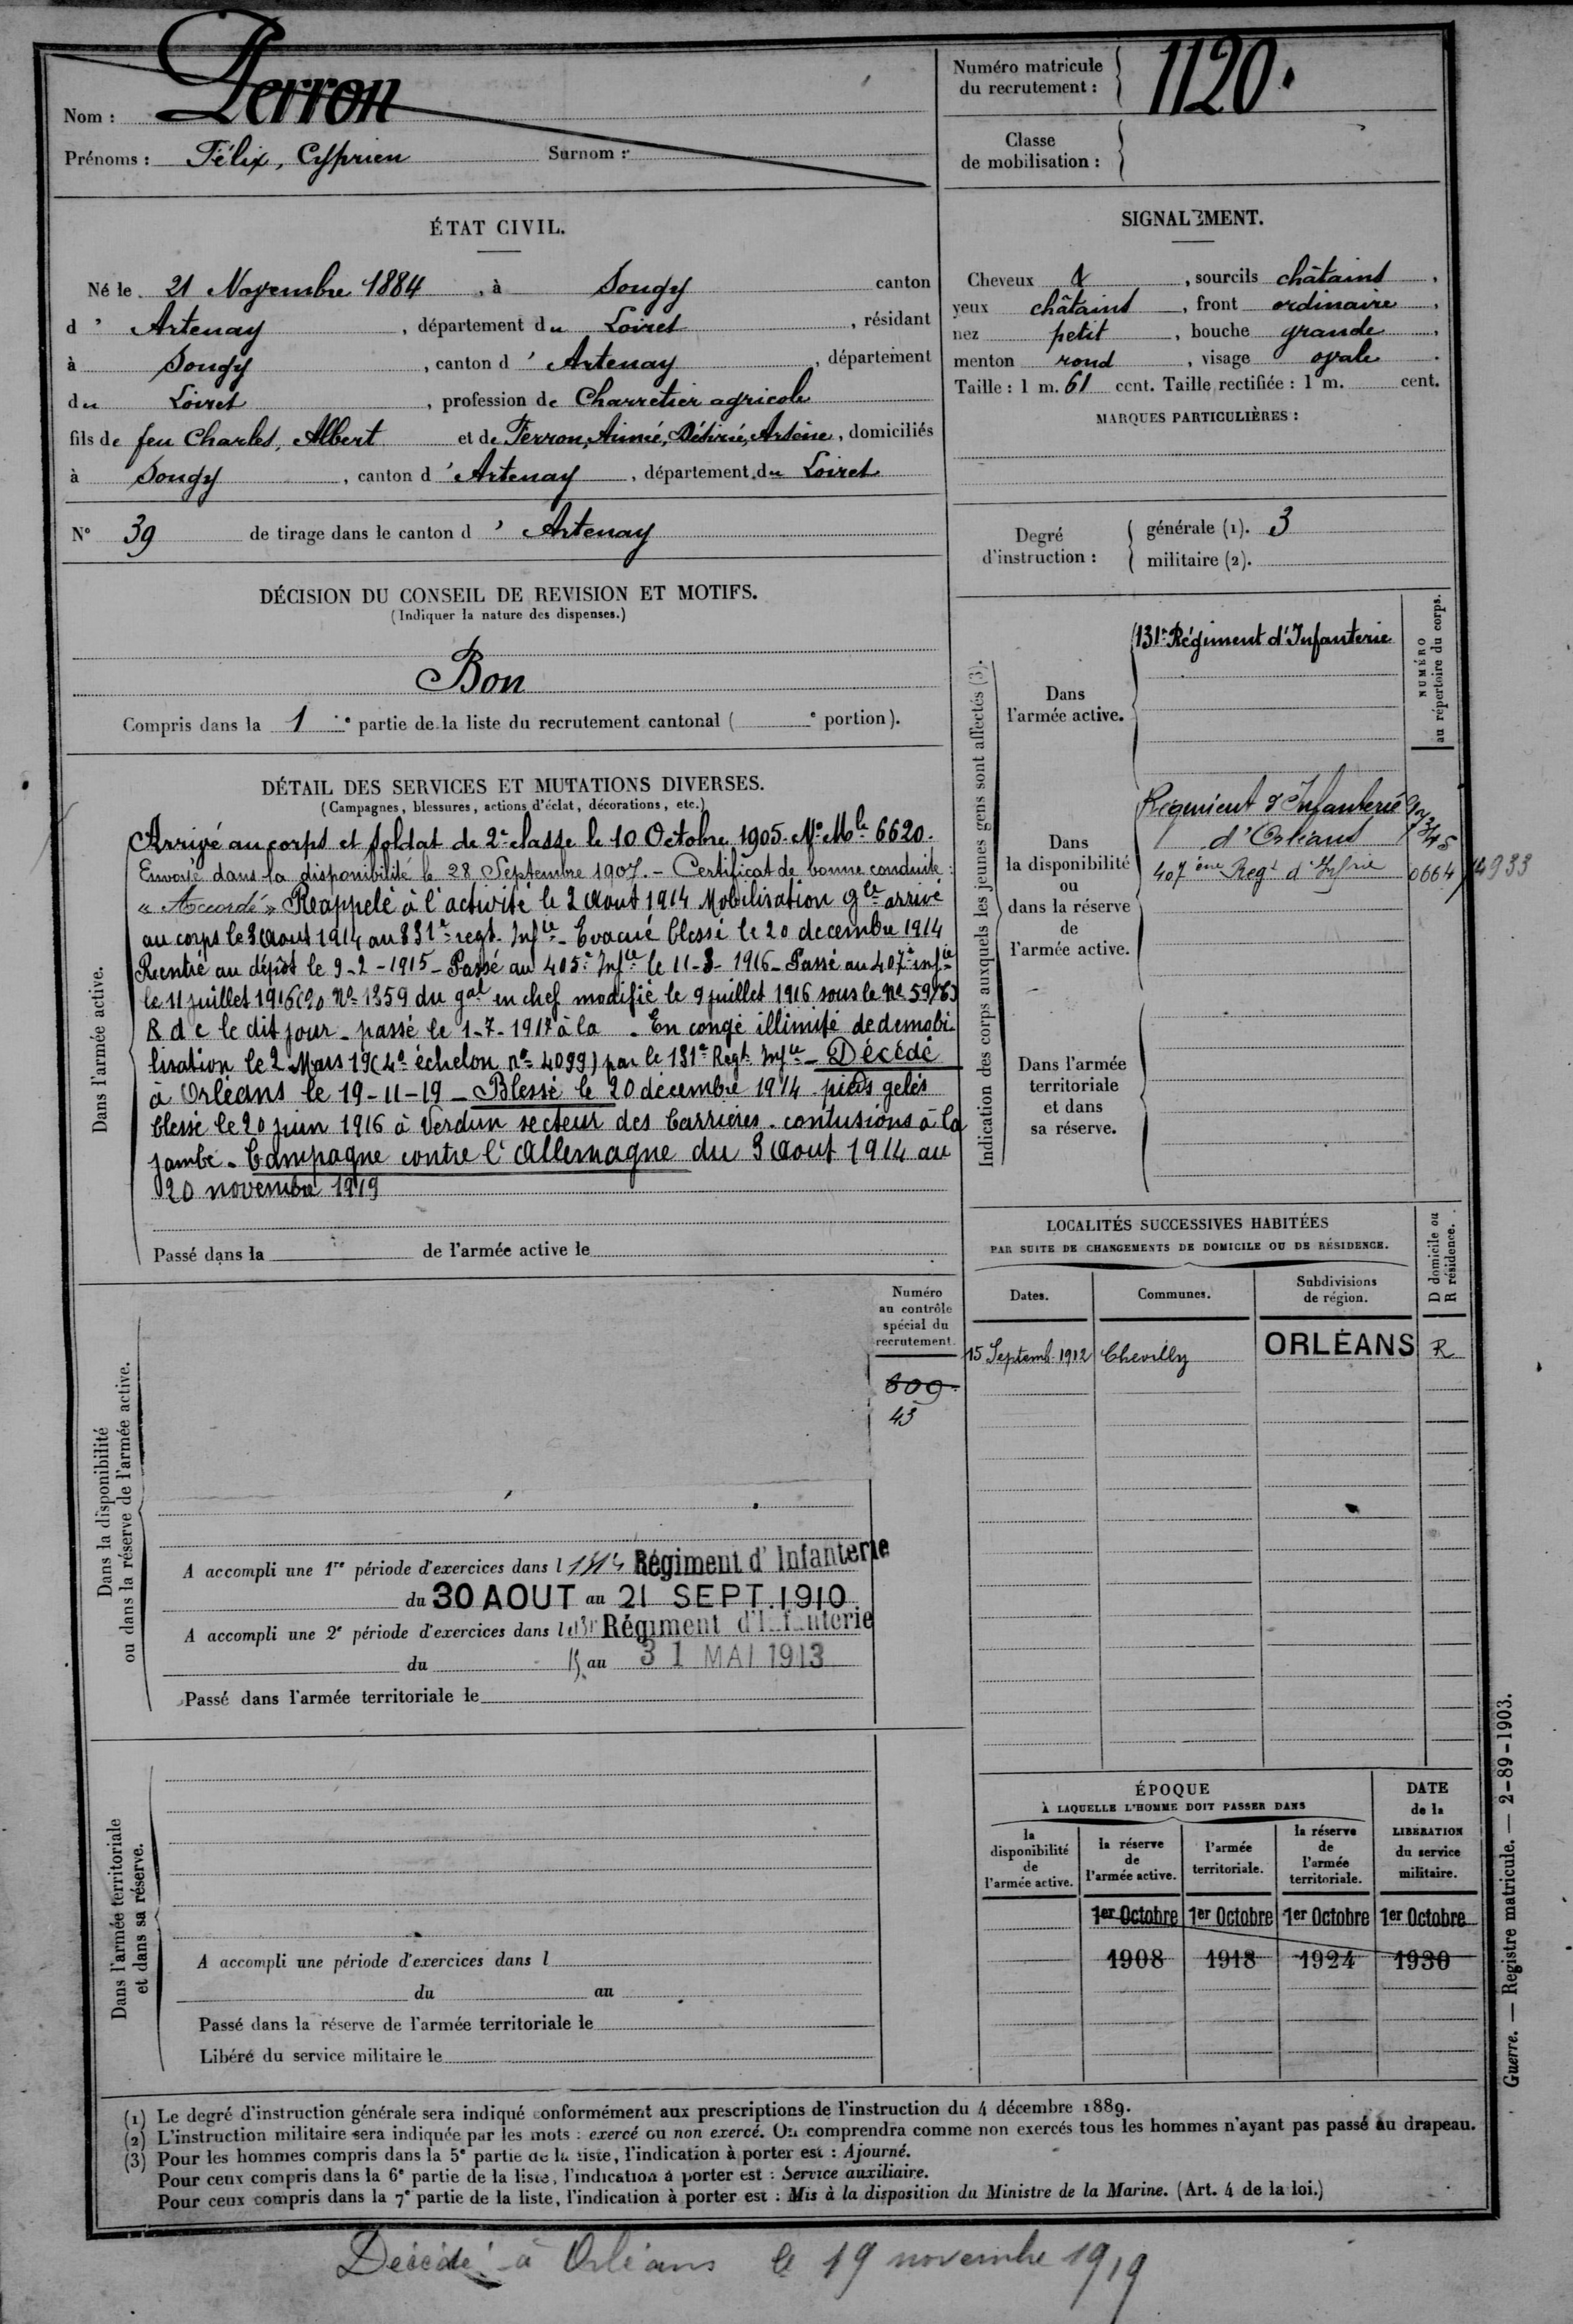 Nom : Perron
Prénoms : Félix, Cyprien Surnom :
Numéro matricule
du recrutement : 1120.
Classe
de mobilisation :
ÉTAT CIVIL.
Né le 21 Novembre 1884, à Sougy canton
d'Artenay, département du Loiret, résidant
à Sougy, canton d'Artenay, département
du Loiret, profession de Charretier agricole
fils de feu Charles, Albert et de Ferron, Aimée, Désirée, Arsène, domiciliés
à Sougy, canton d'Artenay, département du Loiret
N° 39 de tirage dans le canton d'Artenay
SIGNALEMENT.
Cheveux &, sourcils châtains,
yeux châtains, front ordinaire,
nez petit, bouche grande,
menton rond, visage ovale.
Taille : 1 m. 61 cent. Taille rectifiée : 1 m. cent.
MARQUES PARTICULIÈRES :
Degré
d'instruction :
générale (1). 3
militaire (2).
DÉCISION DU CONSEIL DE REVISION ET MOTIFS.
(Indiquer la nature des dispenses.)
Bon
Compris dans la 1e partie de la liste du recrutement cantonal ( e portion).
DÉTAIL DES SERVICES ET MUTATIONS DIVERSES.
(Campagnes, blessures, actions d'éclat, décorations, etc.)
Dans l'armée active.
Arrivé au corps et soldat de 2e classe le 10 Octobre 1905. No Mle 6620.
Envoyé dans la disponibilité le 28 Septembre 1907. – Certificat de bonne conduite :
"Accordé" Réappelé à l'activité le 2 Aout 1914 Mobilisation gle arrivé
au corps le 3 Aout 1914 au 331e regt. Infie – Evacué blessé le 20 decembre 1914
Rentré au dépôt le 9-2-1915 – Passé au 405e Infie le 11-3-1916 – Passé au 407e infie
le 11 juillet 1916 No 1359 du gal en chef modifié le 9 juillet 1916 sous le No
R d c le dit jour – passé le 1-7-1917 à la – En congé illimité de demobi
lisation le 2 Mars 19 (4e échelon no 4099) par le 131e Regt. Infie – Décédé
à Orléans le 19-11-19 – Blessé le 20 décembre 1914 pieds gelés
blessé le 20 juin 1916 à Verdun secteur des Carrières – contusions à la
jambe – Campagne contre l'Allemagne du 3 Aout 1914 au
20 novembre 1919
Passé dans la de l'armée active le
Indication des corps auxquels les jeunes gens sont affectés (3).
NUMÉRO
au répertoire du corps.
Dans
l'armée active.
131e Régiment d'Infanterie
Dans
la disponibilité
ou
dans la réserve
de
l'armée active.
Régiment d'Infanterie
d'Orléans
407ème Regt d'Infrie 0664 14933
Dans l'armée
territoriale
et dans
sa réserve.
LOCALITÉS SUCCESSIVES HABITÉES
PAR SUITE DE CHANGEMENTS DE DOMICILE OU DE RÉSIDENCE.
D domicile ou
R résidence.
Dates. Communes. Subdivisions
de région.
15 Septemb. 1912 Chevilly ORLÉANS R
Dans la disponibilité
ou dans la réserve de l'armée active.
Numéro
au contrôle
spécial du
recrutement.
609
43
A accompli une 1re période d'exercices dans l Régiment d'Infanterie
du 30 AOUT au 21 SEPT. 1910
A accompli une 2e période d'exercices dans l Régiment d'Infanterie
du au 31 MAI 1913
Passé dans l'armée territoriale le
Dans l'armée territoriale
et dans sa réserve.
A accompli une période d'exercices dans l
du au
Passé dans la réserve de l'armée territoriale le
Libéré du service militaire le
ÉPOQUE
À LAQUELLE L'HOMME DOIT PASSER DANS
DATE
de la
LIBÉRATION
du service
militaire.
la
disponibilité
de
l'armée active.
la réserve
de
l'armée active.
l'armée
territoriale.
la réserve
de
l'armée
territoriale.
1er Octobre 1er Octobre 1er Octobre 1er Octobre
1908 1918 1924 1930
Guerre. — Registre matricule. — 2-89-1903.
(1) Le degré d'instruction générale sera indiqué conformément aux prescriptions de l'instruction du 4 décembre 1889.
(2) L'instruction militaire sera indiquée par les mots : exercé ou non exercé. On comprendra comme non exercés tous les hommes n'ayant pas passé au drapeau.
(3) Pour les hommes compris dans la 5e partie de la liste, l'indication à porter est : Ajourné.
Pour ceux compris dans la 6e partie de la liste, l'indication à porter est : Service auxiliaire.
Pour ceux compris dans la 7e partie de la liste, l'indication à porter est : Mis à la disposition du Ministre de la Marine. (Art. 4 de la loi.)
Décédé à Orléans le 19 novembre 1919